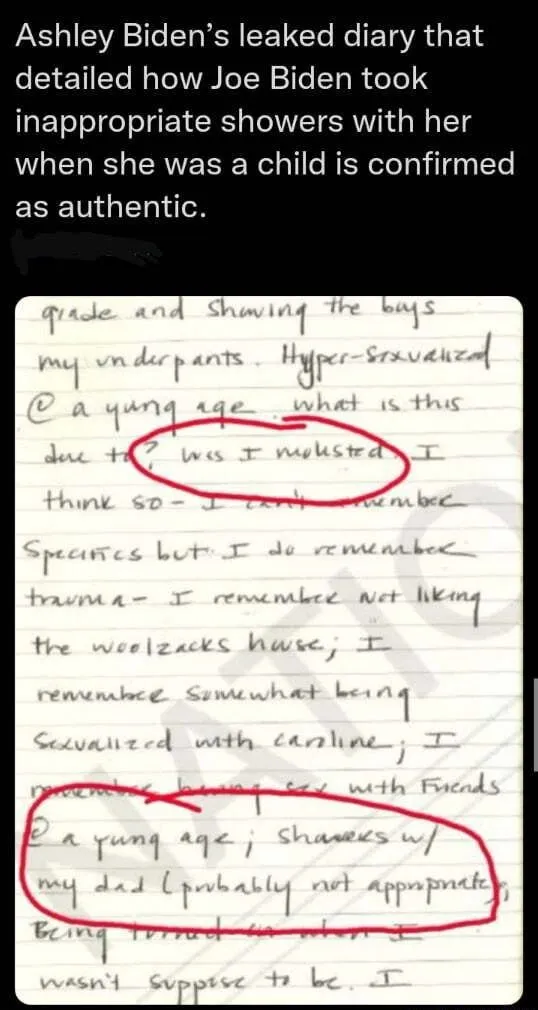 Ashley Biden’s leaked diary that
detailed how Joe Biden took
inappropriate showers with her
when she was a child is confirmed
as authentic.
grade and showing the boys
my underpants. Hyper-Sexualized
@ a yung age. what is this
due to? Was I molested. I
think so - I can't remember
Specifics but I do remember
trauma - I remember not liking
the woolzacks house; I
remember somewhat being
Sexualized with caroline; I
remember having sex with Friends
@ a yung age; showers w/
my dad (probably not appropriate).
Being turned on when I
wasn't suppose to be. I
NATIO